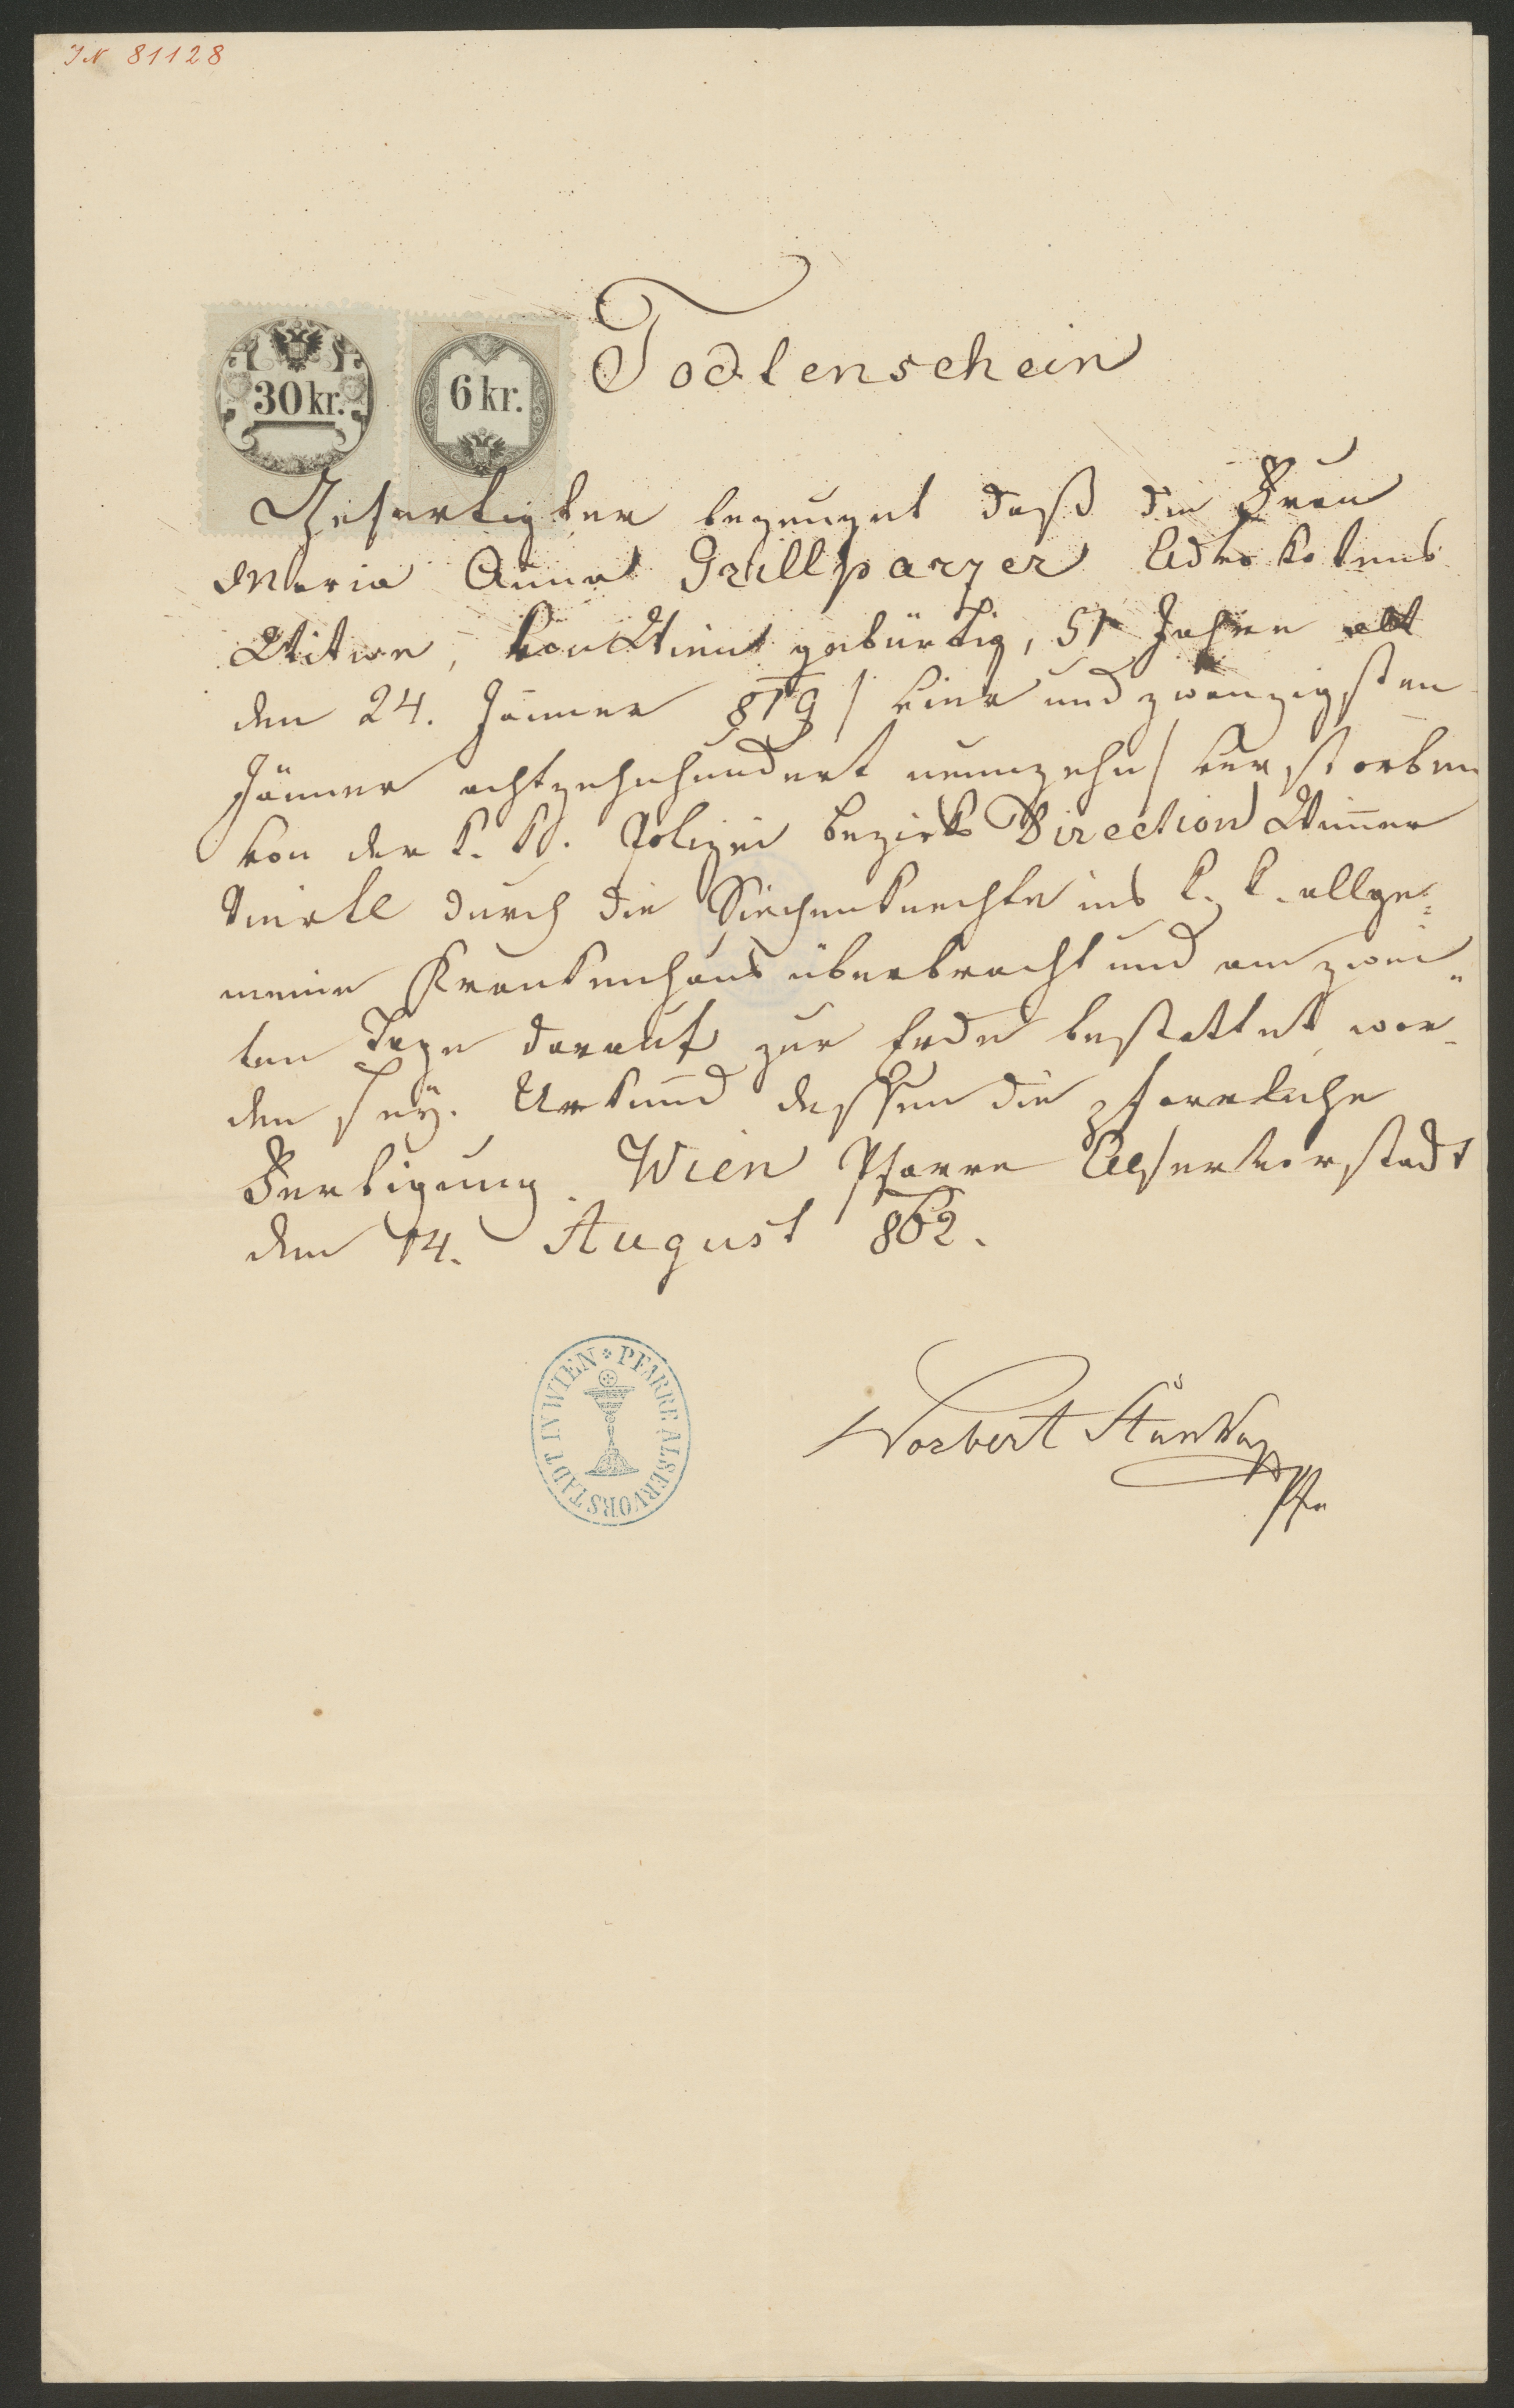 IN 81128
30 kr.
6 kr.
Todtenschein
Gefertigter bezeuget daß die Frau
Maria Anna Grillparzer Advokatens
Witwe, von Wien gebürtig, 51 Jahre alt
den 24. Jänner 819 / vier und zwanzigsten
Jänner achtzehnhundert neunzehn / verstorben
von der k. k. Polizei Bezirks Direction Wimmer
Viertl durch die Siechenknechte ins k. k. allge=
meine Krankenhaus überbracht und am zwei=
ten Tage darauf zur Erde bestattet wor-
den seÿ. Urkund dessen die pfarrliche
Fertigung. Wien Pfarre Alservorstadt
den 14. August 862.
PFARRE ALSERVORSTADT IN WIEN
Norbert
Pfr